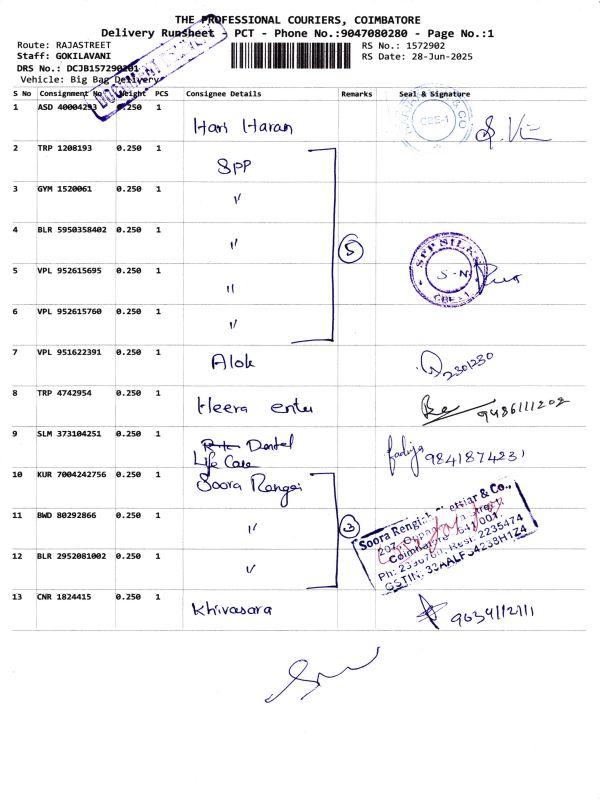 THE PROFESSIONAL COURIERS, COIMBATORE
Delivery Runsheet - PCT - Phone No.:9047080280 - Page No.:1
Route: RAJASTREET
RS No.: 1572902
Staff: GOKILAVANI
RS Date: 28-Jun-2025
DRS No.: DCJB157290201
Vehicle: Big Bag Delivery
S No Consignment No Weight PCS Consignee Details Remarks Seal & Signature
1 ASD 40004293 0.250 1 Hari Haran
& CO
CBE-1
2 TRP 1208193 0.250 1 SPP
3 GYM 1520061 0.250 1 "
4 BLR 5950358402 0.250 1 " 5
SPP SILKS
S-N
CBE-1
5 VPL 952615695 0.250 1 "
6 VPL 952615760 0.250 1 "
7 VPL 951622391 0.250 1 Alok
8 TRP 4742954 0.250 1 Heera enter
9 SLM 373104251 0.250 1 Dental
Life Care 9841874231
10 KUR 7004242756 0.250 1 Soora Rengai
11 BWD 80292866 0.250 1 " 3
Soora Rengiah Chettiar & Co.,
641 001.
Resi: 2235474
GSTIN: 33AALFS4238H1Z4
12 BLR 2952081002 0.250 1 "
13 CNR 1824415 0.250 1 Khivasara 9634112111